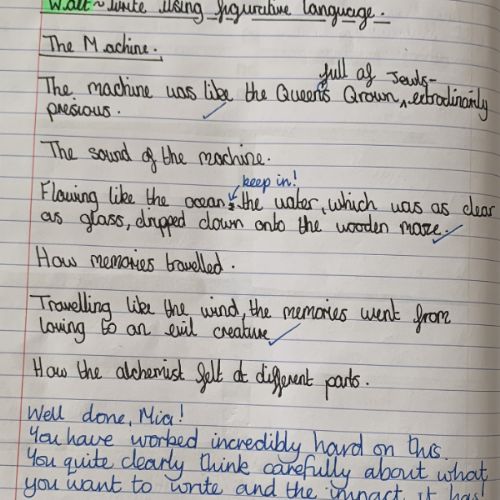 Walt~ write using figurative language.
The Machine.
full of Jewls-
The machine was like the Queens Qrown, extrodinarily
presious.
The sound of the machine.
keep in!
Flowing like the ocean, the water, which was as clear
as glass, dripped down onto the wooden maze.
How memories travelled.
Travelling like the wind, the memories went from
loving to an evil creature
How the alchemist felt at different parts.
Well done, Mia!
You have worked incredibly hard on this.
You quite clearly think carefully about what
you want to write and the impact it has